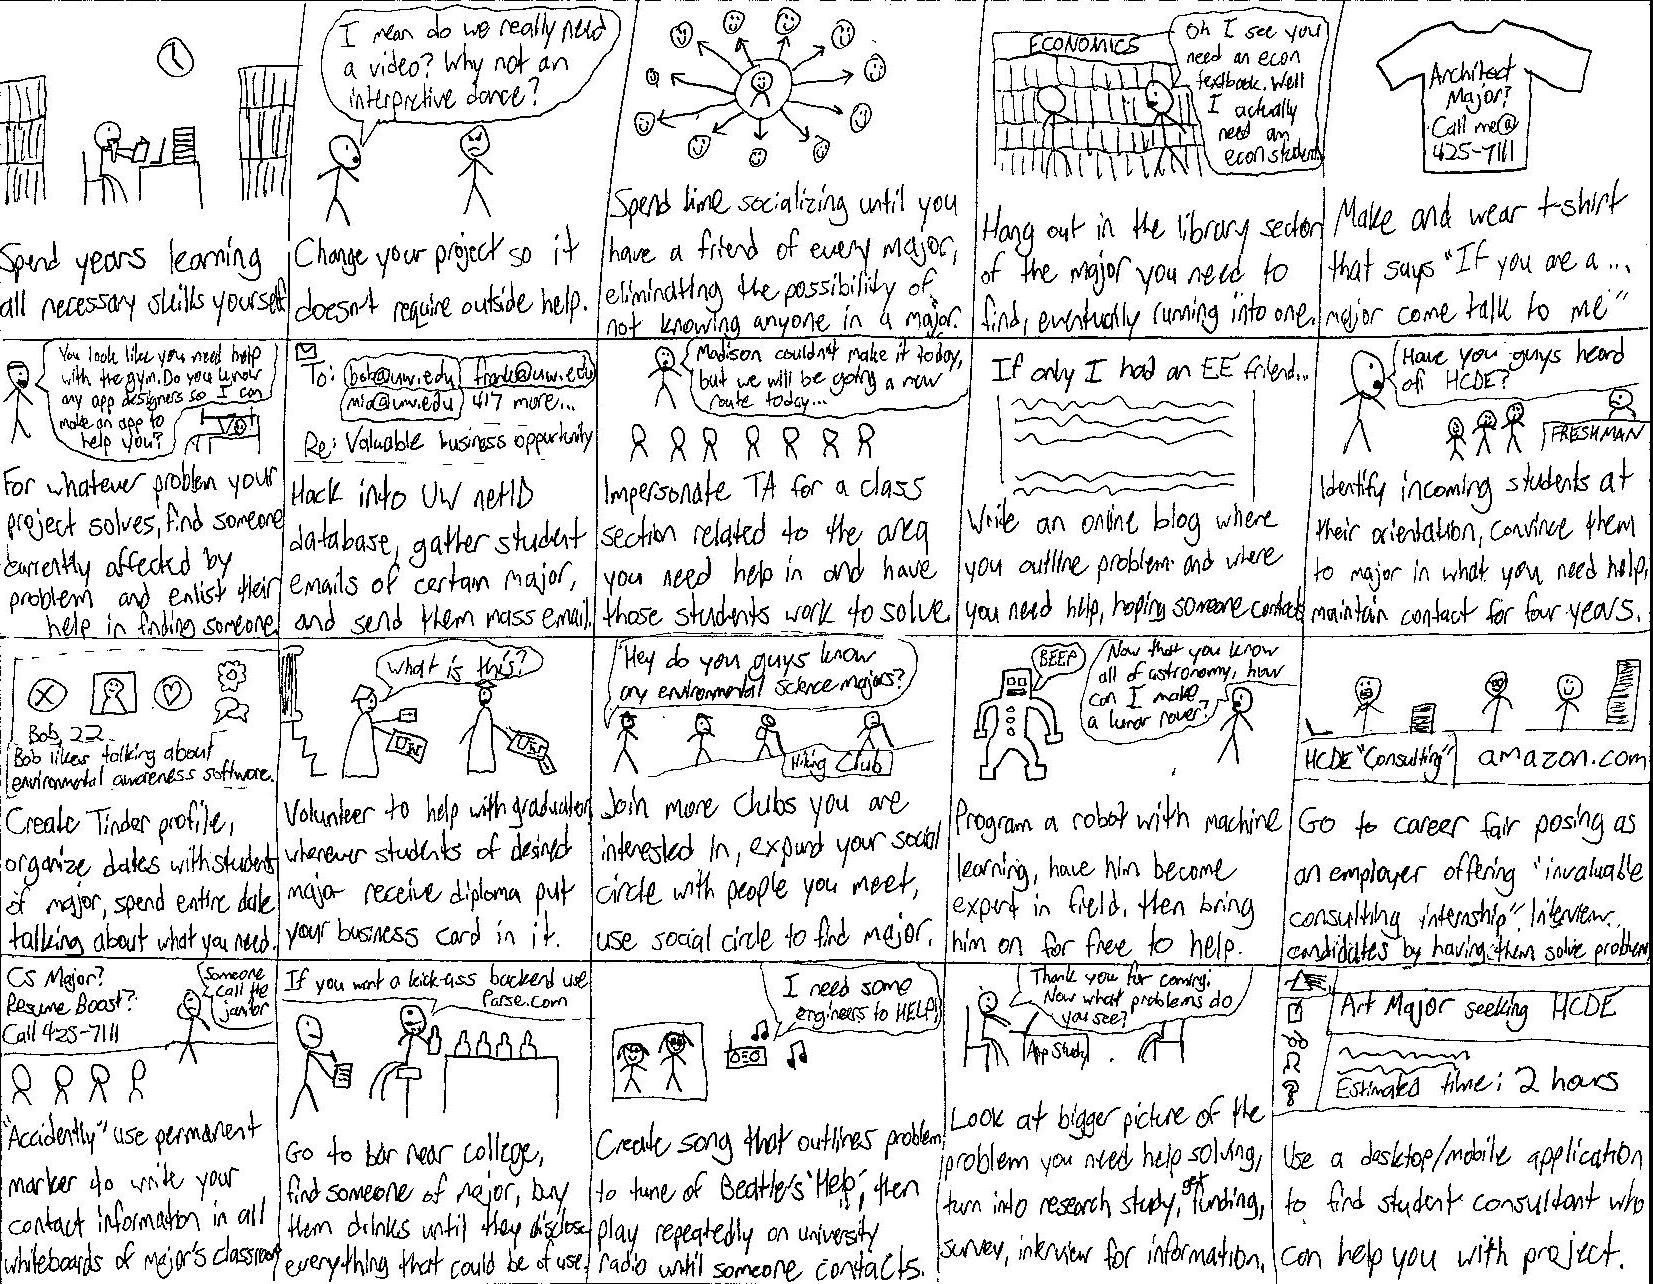 Spend years learning
all necessary skills yourself
I mean do we really need
a video? Why not an
interpretive dance?
Change your project so it
doesn't require outside help.
Spend time socializing until you
have a friend of every major,
eliminating the possibility of
not knowing anyone in a major.
ECONOMICS
Oh I see you
need an econ
textbook. Well
I actually
need an
econ student
Hang out in the library sector
of the major you need to
find, eventually running into one.
Architect
Major?
Call me@
425-7111
Make and wear t-shirt
that says "If you are a...
major come talk to me"
You look like you need help
with the gym. Do you know
any app designers so I can
make an app to
help you?
For whatever problem your
project solves, find someone
currently affected by
problem and enlist their
help in finding someone.
To: bob@uw.edu frank@uw.edu
mia@uw.edu 417 more...
Re: Valuable business opportunity
Hack into UW netID
database, gather student
emails of certain major,
and send them mass email.
Madison couldn't make it today,
but we will be going a new
route today...
Impersonate TA for a class
section related to the area
you need help in and have
those students work to solve.
If only I had an EE friend...
Write an online blog where
you outline problem and where
you need help, hoping someone contacts
Have you guys heard
of HCDE?
FRESHMAN
Identify incoming students at
their orientation, convince them
to major in what you need help,
maintain contact for four years.
Bob, 22
Bob likes talking about
environmental awareness software.
Create Tinder profile,
organize dates with students
of major, spend entire date
talking about what you need.
What is this?
Volunteer to help with graduation
whenever students of desired
major receive diploma put
your business card in it.
Hey do you guys know
any environmental science majors?
Hiking Club
Join more clubs you are
interested in, expand your social
circle with people you meet,
use social circle to find major.
BEEP
Now that you know
all of astronomy, how
can I make
a lunar rover?
Program a robot with machine
learning, have him become
expert in field, then bring
him on for free to help.
HCDE "Consulting"
amazon.com
Go to career fair posing as
an employer offering "invaluable
consulting internship". Interview
candidates by having them solve problem
CS Major?
Resume Boost?
Call 425-7111
Someone
call the
janitor
"Accidently" use permanent
marker to write your
contact information in all
whiteboards of major's classroom
If you want a kick-ass backend use
Parse.com
Go to bar near college,
find someone of major, buy
them drinks until they disclose
everything that could be of use.
I need some
engineers to HELP!
Create song that outlines problem
to tune of Beatle's "Help", then
play repeatedly on university
radio until someone contacts.
Thank you for coming.
Now what problems do
you see?
App Study
Look at bigger picture of the
problem you need help solving,
turn into research study, get funding,
survey, interview for information.
Art Major seeking HCDE
Estimated time: 2 hours
Use a desktop/mobile application
to find student consultant who
can help you with project.